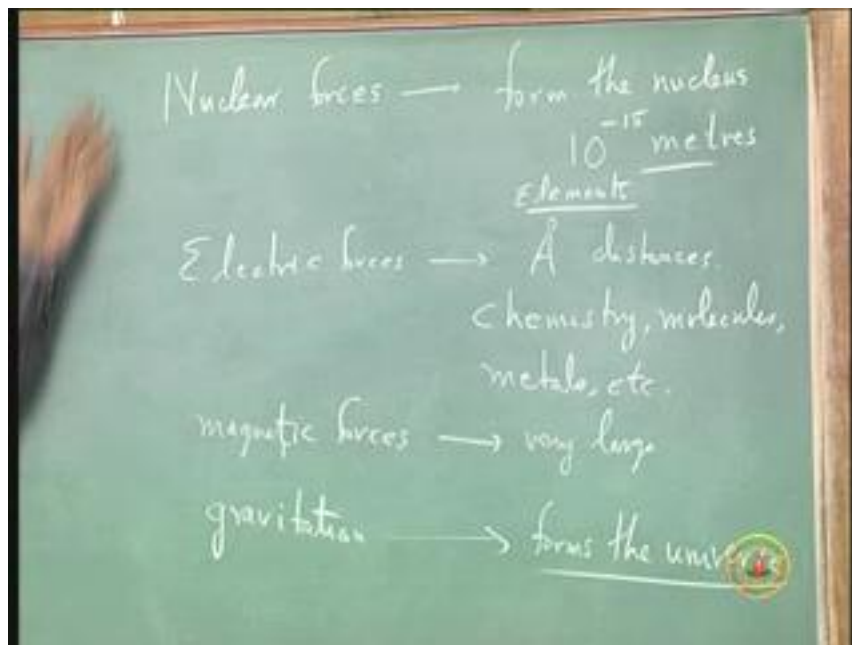 Nuclear forces — form the nucleus
10⁻¹⁵ metres
Elements
Electric forces → Å distances.
chemistry, molecules,
metals, etc.
magnetic forces → very large
gravitation → forms the universe